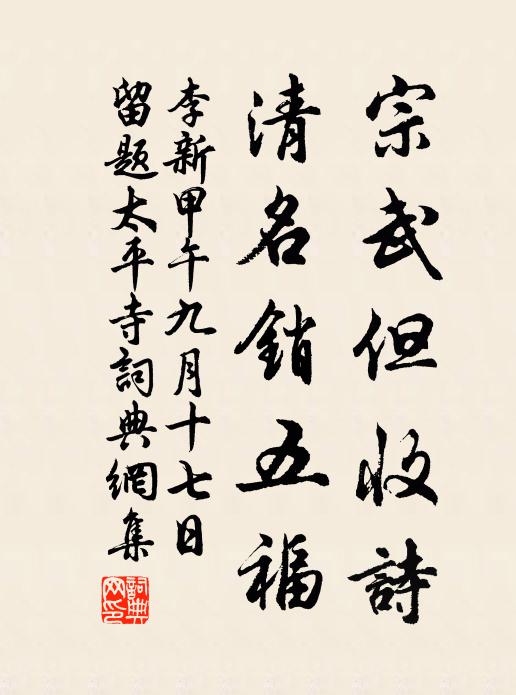 宗武但收詩
清名銷五福
李新甲午九月十七日
留題太平寺詞典網集
詞典網印